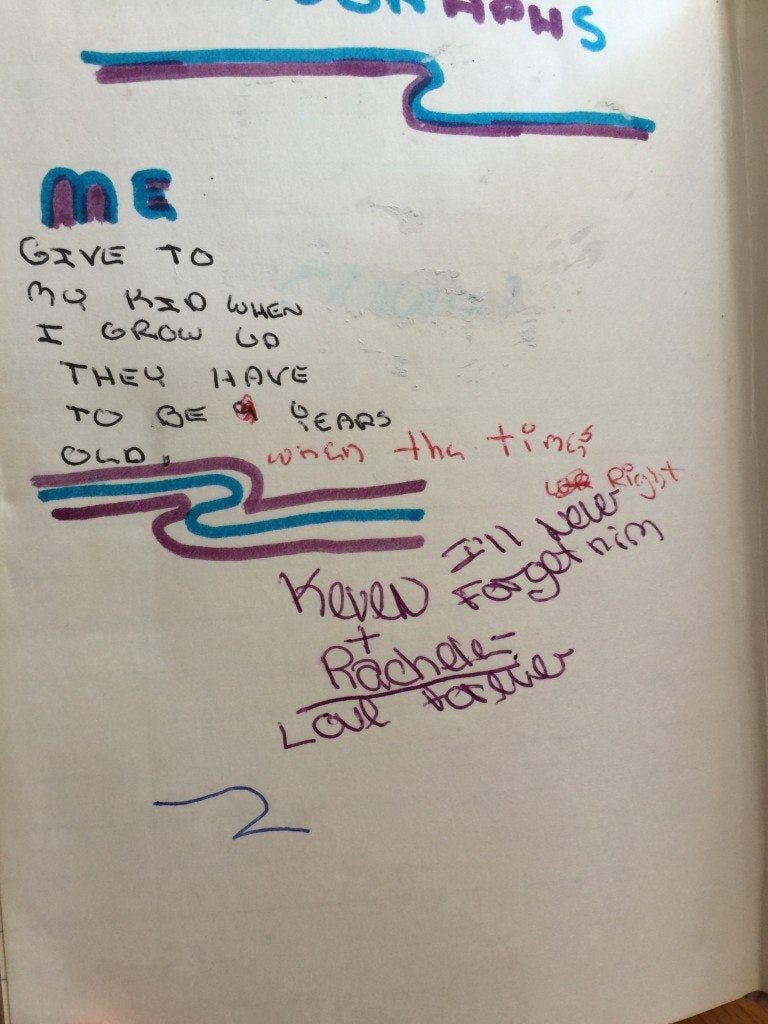 ME
GIVE TO
MY KID WHEN
I GROW UP
THEY HAVE
TO BE 9 YEARS
OLD.
when the times
Right
I'll never
Forget him
Keven
+
Rachele
Love forever